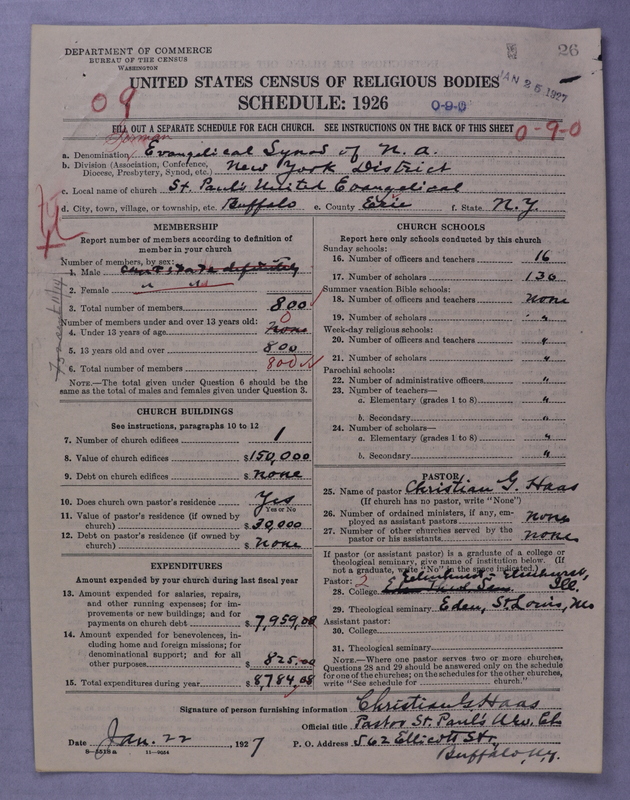 DEPARTMENT OF COMMERCE
BUREAU OF THE CENSUS
WASHINGTON
26
JAN 25 1927
UNITED STATES CENSUS OF RELIGIOUS BODIES
SCHEDULE: 1926
09
0-9-0
FILL OUT A SEPARATE SCHEDULE FOR EACH CHURCH. SEE INSTRUCTIONS ON THE BACK OF THIS SHEET
0-9-0
German
a. Denomination Evangelical Synod of N. A.
b. Division (Association, Conference, Diocese, Presbytery, Synod, etc.) New York District
c. Local name of church St. Paul's United Evangelical
d. City, town, village, or township, etc. Buffalo e. County Erie f. State N.Y.
MEMBERSHIP
Report number of members according to definition of
member in your church
Number of members by sex:
1. Male can't state definitely
2. Female " "
3. Total number of members 800
Number of members under and over 13 years old: 0
4. Under 13 years of age none
5. 13 years old and over 800
6. Total number of members 800
NOTE.—The total given under Question 6 should be the
same as the total of males and females given under Question 3.
CHURCH BUILDINGS
See instructions, paragraphs 10 to 12
7. Number of church edifices 1
8. Value of church edifices $150,000
9. Debt on church edifices $ none
10. Does church own pastor's residence Yes
Yes or No
11. Value of pastor's residence (if owned by
church) $30,000
12. Debt on pastor's residence (if owned by
church) $ none
EXPENDITURES
Amount expended by your church during last fiscal year
13. Amount expended for salaries, repairs,
and other running expenses; for im-
provements or new buildings; and for
payments on church debt $7,959,00
14. Amount expended for benevolences, in-
cluding home and foreign missions; for
denominational support; and for all
other purposes $825,00
15. Total expenditures during year $8,784,00
CHURCH SCHOOLS
Report here only schools conducted by this church
Sunday schools:
16. Number of officers and teachers 16
17. Number of scholars 130
Summer vacation Bible schools:
18. Number of officers and teachers none
19. Number of scholars "
Week-day religious schools:
20. Number of officers and teachers "
21. Number of scholars "
Parochial schools:
22. Number of administrative officers "
23. Number of teachers—
a. Elementary (grades 1 to 8) "
b. Secondary "
24. Number of scholars—
a. Elementary (grades 1 to 8) "
b. Secondary "
PASTOR
25. Name of pastor Christian G. Haas
(If church has no pastor, write "None")
26. Number of ordained ministers, if any, em-
ployed as assistant pastors none
27. Number of other churches served by the
pastor or his assistants none
If pastor (or assistant pastor) is a graduate of a college or
theological seminary, give name of institution below. (If
not a graduate, write "No" in the space indicated.)
Pastor: 2 Elmhurst - Elmhurst,
28. College Ill.
29. Theological seminary Eden, St. Louis, Mo
Assistant pastor:
30. College
31. Theological seminary
NOTE.—Where one pastor serves two or more churches,
Questions 28 and 29 should be answered only on the schedule
for one of the churches; on the schedules for the other churches,
write "See schedule for church."
Signature of person furnishing information Christian G Haas
Official title Pastor St. Paul's Un. Ev. Ch
Date Jan. 22, 1927 P. O. Address 562 Ellicott St.,
Buffalo, N.Y.
8-5518a 11-9024